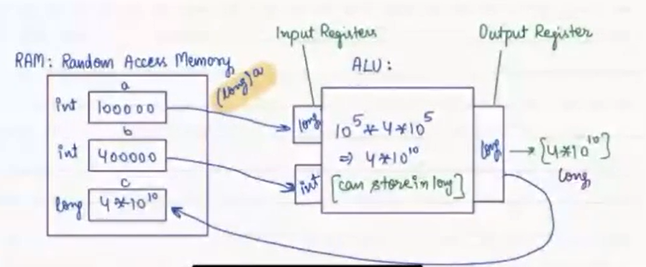 Input Registers
Output Register
RAM: Random Access Memory
(long) a
ALU:
a
int 100000
b
int 400000
c
long 4*10^10
long
int
10^5 * 4*10^5
=> 4*10^10
[can store in long]
long
→ [4*10^10]
long